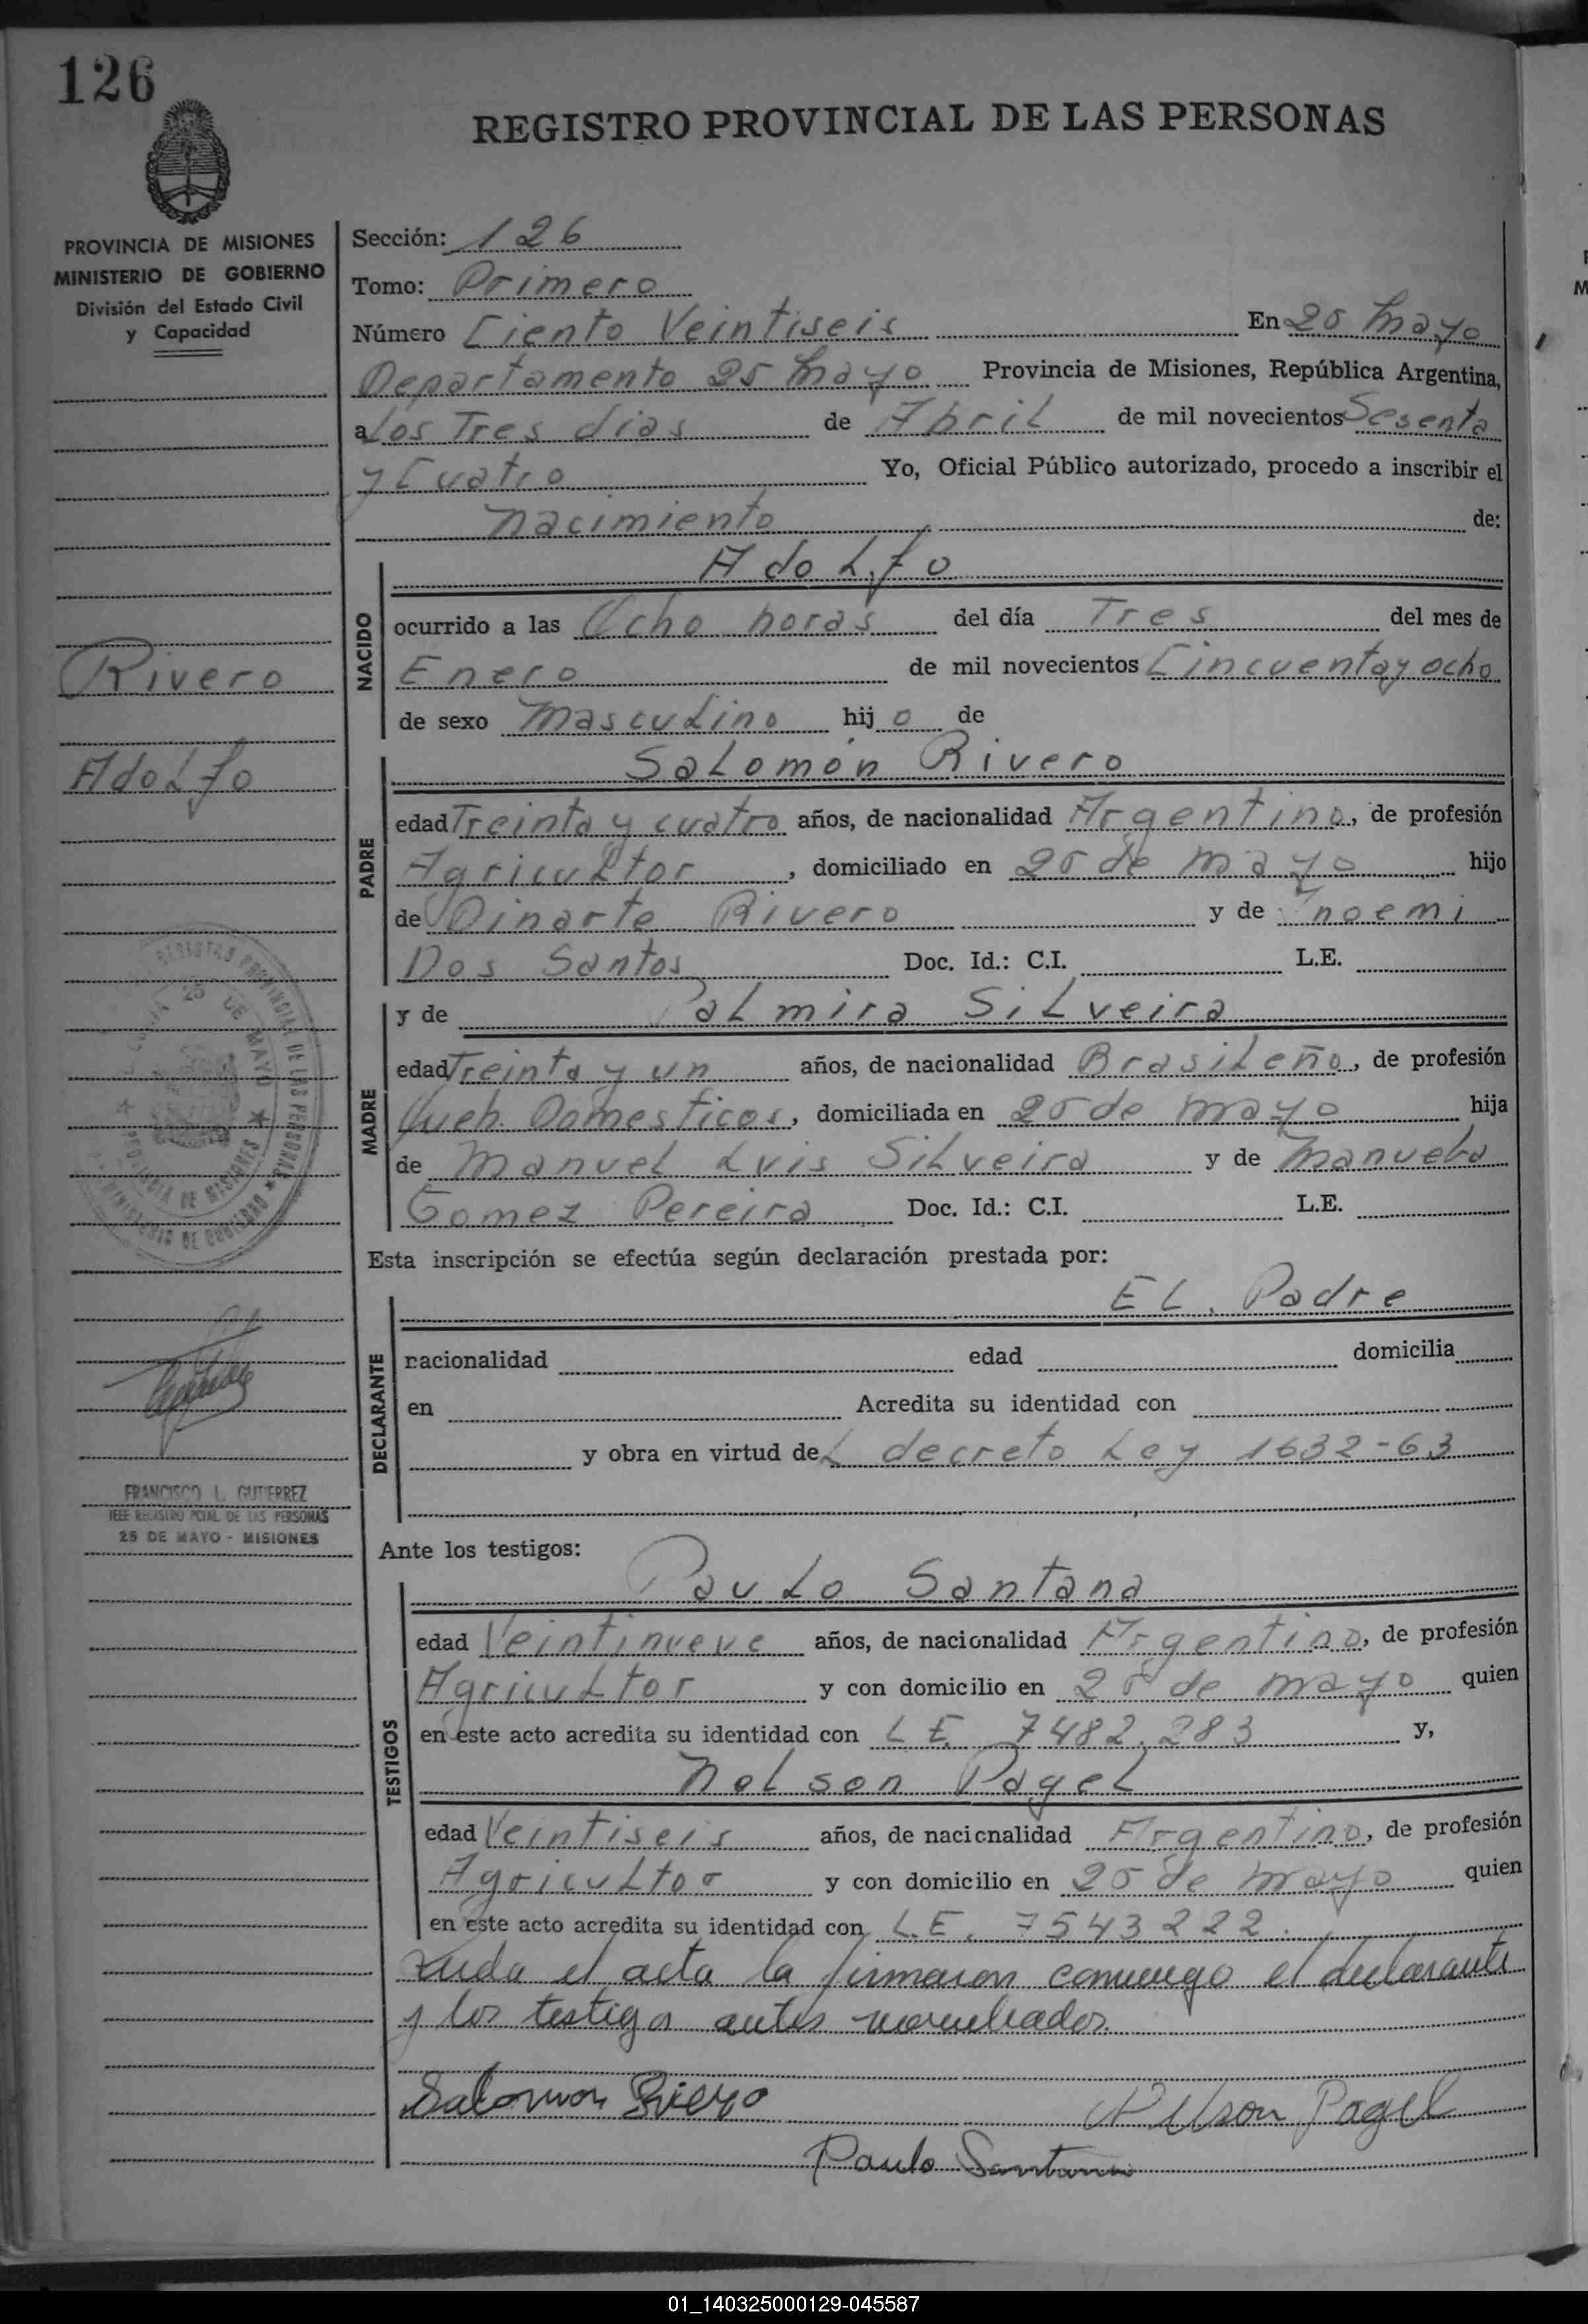 126
REGISTRO PROVINCIAL DE LAS PERSONAS
PROVINCIA DE MISIONES
MINISTERIO DE GOBIERNO
División del Estado Civil
y Capacidad
Rivero
Adolfo
REGISTRO PROVINCIAL DE LAS PERSONAS
25 DE MAYO
PROVINCIA DE MISIONES
MINISTERIO DE GOBIERNO
FRANCISCO L. GUTIERREZ
JEFE REGISTRO PCIAL DE LAS PERSONAS
25 DE MAYO - MISIONES
Sección: 126
Tomo: Primero
Número Ciento Veintiseis En 25 Mayo
Departamento 25 Mayo Provincia de Misiones, República Argentina,
a Los Tres dias de Abril de mil novecientos Sesenta
y Cuatro Yo, Oficial Público autorizado, procedo a inscribir el
nacimiento de:
NACIDO
Adolfo
ocurrido a las Ocho horas del día Tres del mes de
Enero de mil novecientos Cincuenta y ocho
de sexo Masculino hijo de
PADRE
Salomón Rivero
edad Treinta y cuatro años, de nacionalidad Argentino, de profesión
Agricultor, domiciliado en 25 de mayo hijo
de Dinarte Rivero y de noemi
Dos Santos Doc. Id.: C.I. L.E.
MADRE
y de Palmira Silveira
edad Treinta y un años, de nacionalidad Brasileño, de profesión
Queh. Domesticos, domiciliada en 25 de mayo hija
de Manuel Luis Silveira y de Manuela
Gomez Pereira Doc. Id.: C.I. L.E.
Esta inscripción se efectúa según declaración prestada por:
DECLARANTE
EL. Padre
nacionalidad edad domicilia
en Acredita su identidad con
y obra en virtud del decreto Ley 1632-63
Ante los testigos:
TESTIGOS
Paulo Santana
edad Veintinueve años, de nacionalidad Argentino, de profesión
Agricultor y con domicilio en 25 de mayo quien
en este acto acredita su identidad con L E. 7482.283 y,
Nelson Pagel
edad Veintiseis años, de nacionalidad Argentino, de profesión
Agricultor y con domicilio en 25 de mayo quien
en este acto acredita su identidad con L.E. 7543222.
Leida el acta la firmaron conmigo el declarante
y los testigos antes nombrados.
Salomon Rivero
Nelson Pagel
Paulo Santana
01_140325000129-045587